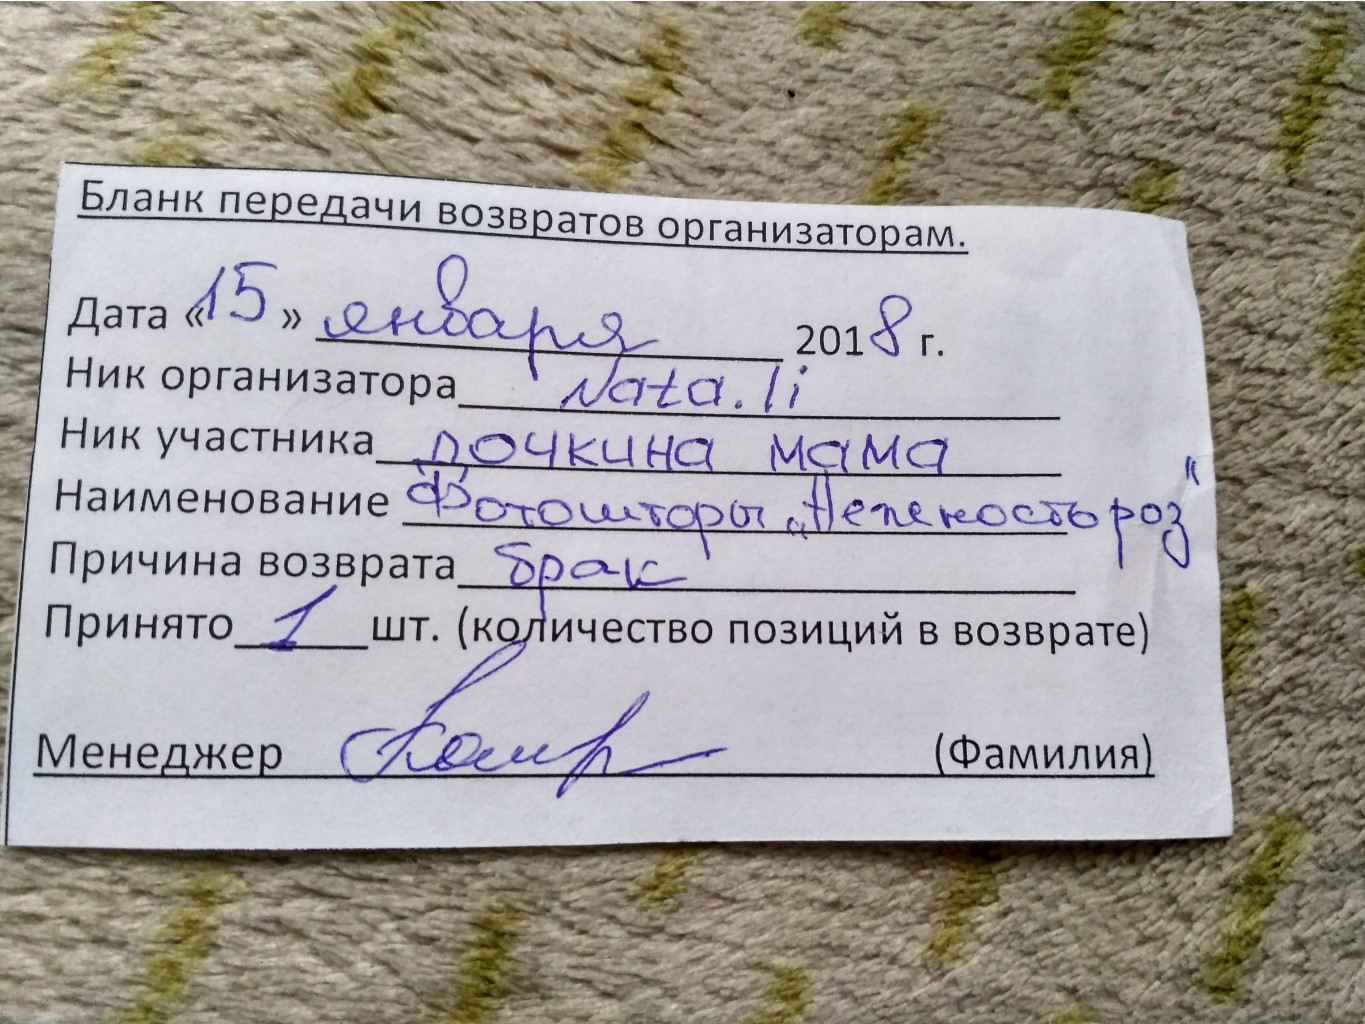 Бланк передачи возвратов организаторам.
Дата «15» января 2018 г.
Ник организатора Nata.li
Ник участника дочкина мама
Наименование Фотошторы „Нежность роз"
Причина возврата брак
Принято 1 шт. (количество позиций в возврате)
Менеджер (Фамилия)